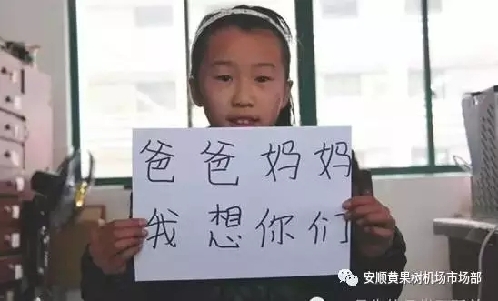 爸爸妈妈
我想你们
安顺黄果树机场市场部